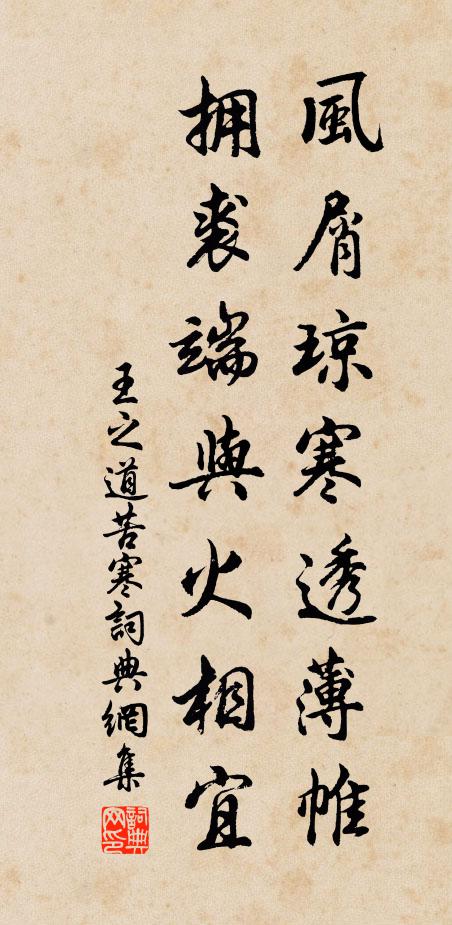 風屑琼寒透薄帷
拥裘端與火相宜
王之道苦寒詞典網集
詞典网印